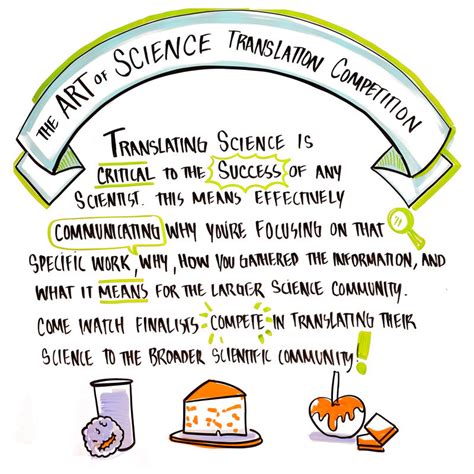 THE ART OF SCIENCE TRANSLATION COMPETITION
TRANSLATING SCIENCE IS
CRITICAL TO THE SUCCESS OF ANY
SCIENTIST. THIS MEANS EFFECTIVELY
COMMUNICATING WHY YOU'RE FOCUSING ON THAT
SPECIFIC WORK, WHY, HOW YOU GATHERED THE INFORMATION, AND
WHAT IT MEANS FOR THE LARGER SCIENCE COMMUNITY.
COME WATCH FINALISTS COMPETE IN TRANSLATING THEIR
SCIENCE TO THE BROADER SCIENTIFIC COMMUNITY!